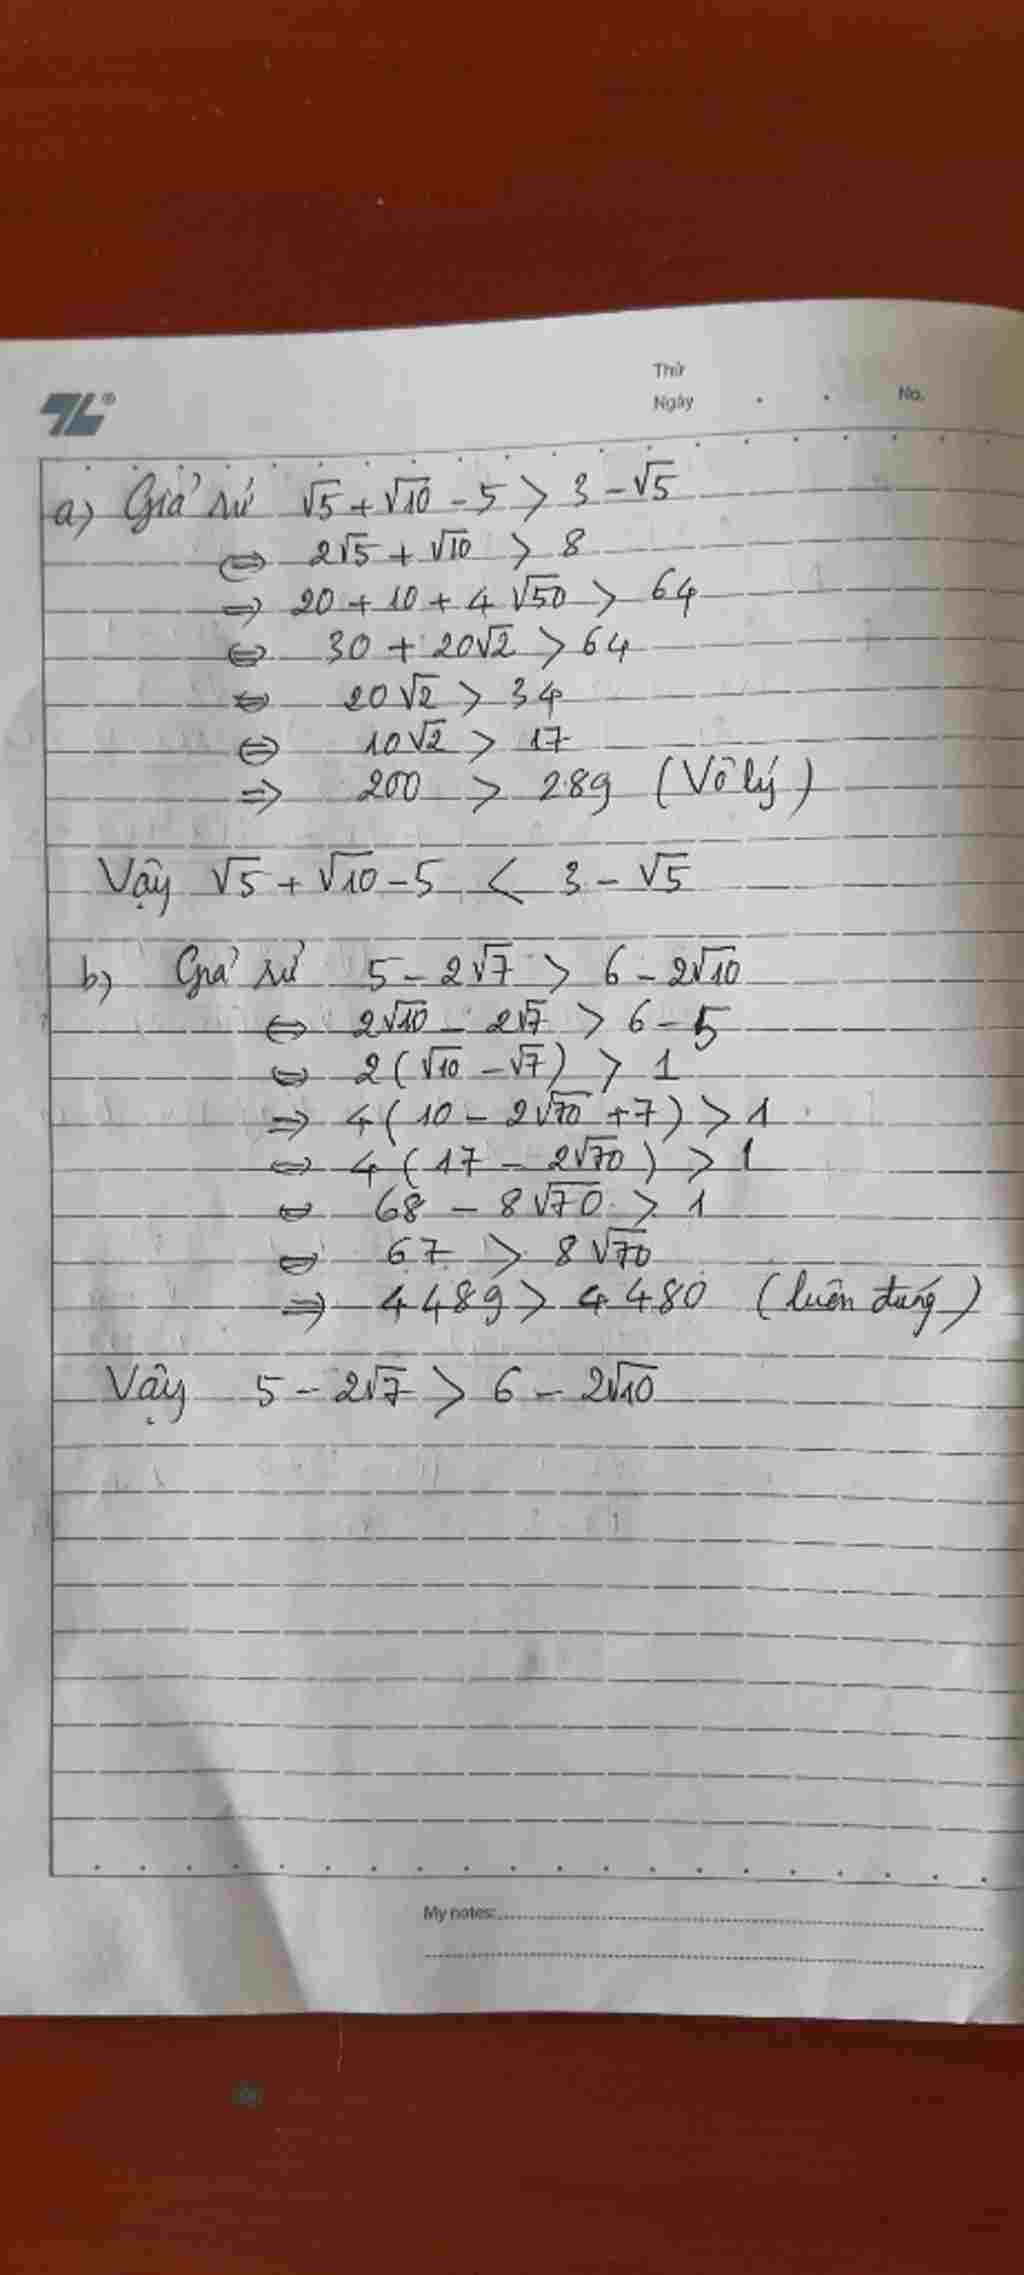 TL®
Thứ
Ngày . . No.
a) Giả sử √5 + √10 - 5 > 3 - √5
⇔ 2√5 + √10 > 8
⇒ 20 + 10 + 4√50 > 64
⇔ 30 + 20√2 > 64
⇔ 20√2 > 34
⇔ 10√2 > 17
⇒ 200 > 289 (Vô lý)
Vậy √5 + √10 - 5 < 3 - √5
b) Giả sử 5 - 2√7 > 6 - 2√10
⇔ 2√10 - 2√7 > 6 - 5
⇔ 2(√10 - √7) > 1
⇒ 4(10 - 2√70 + 7) > 1
⇔ 4(17 - 2√70) > 1
⇔ 68 - 8√70 > 1
⇔ 67 > 8√70
⇒ 4489 > 4480 (luôn đúng)
Vậy 5 - 2√7 > 6 - 2√10
My notes: